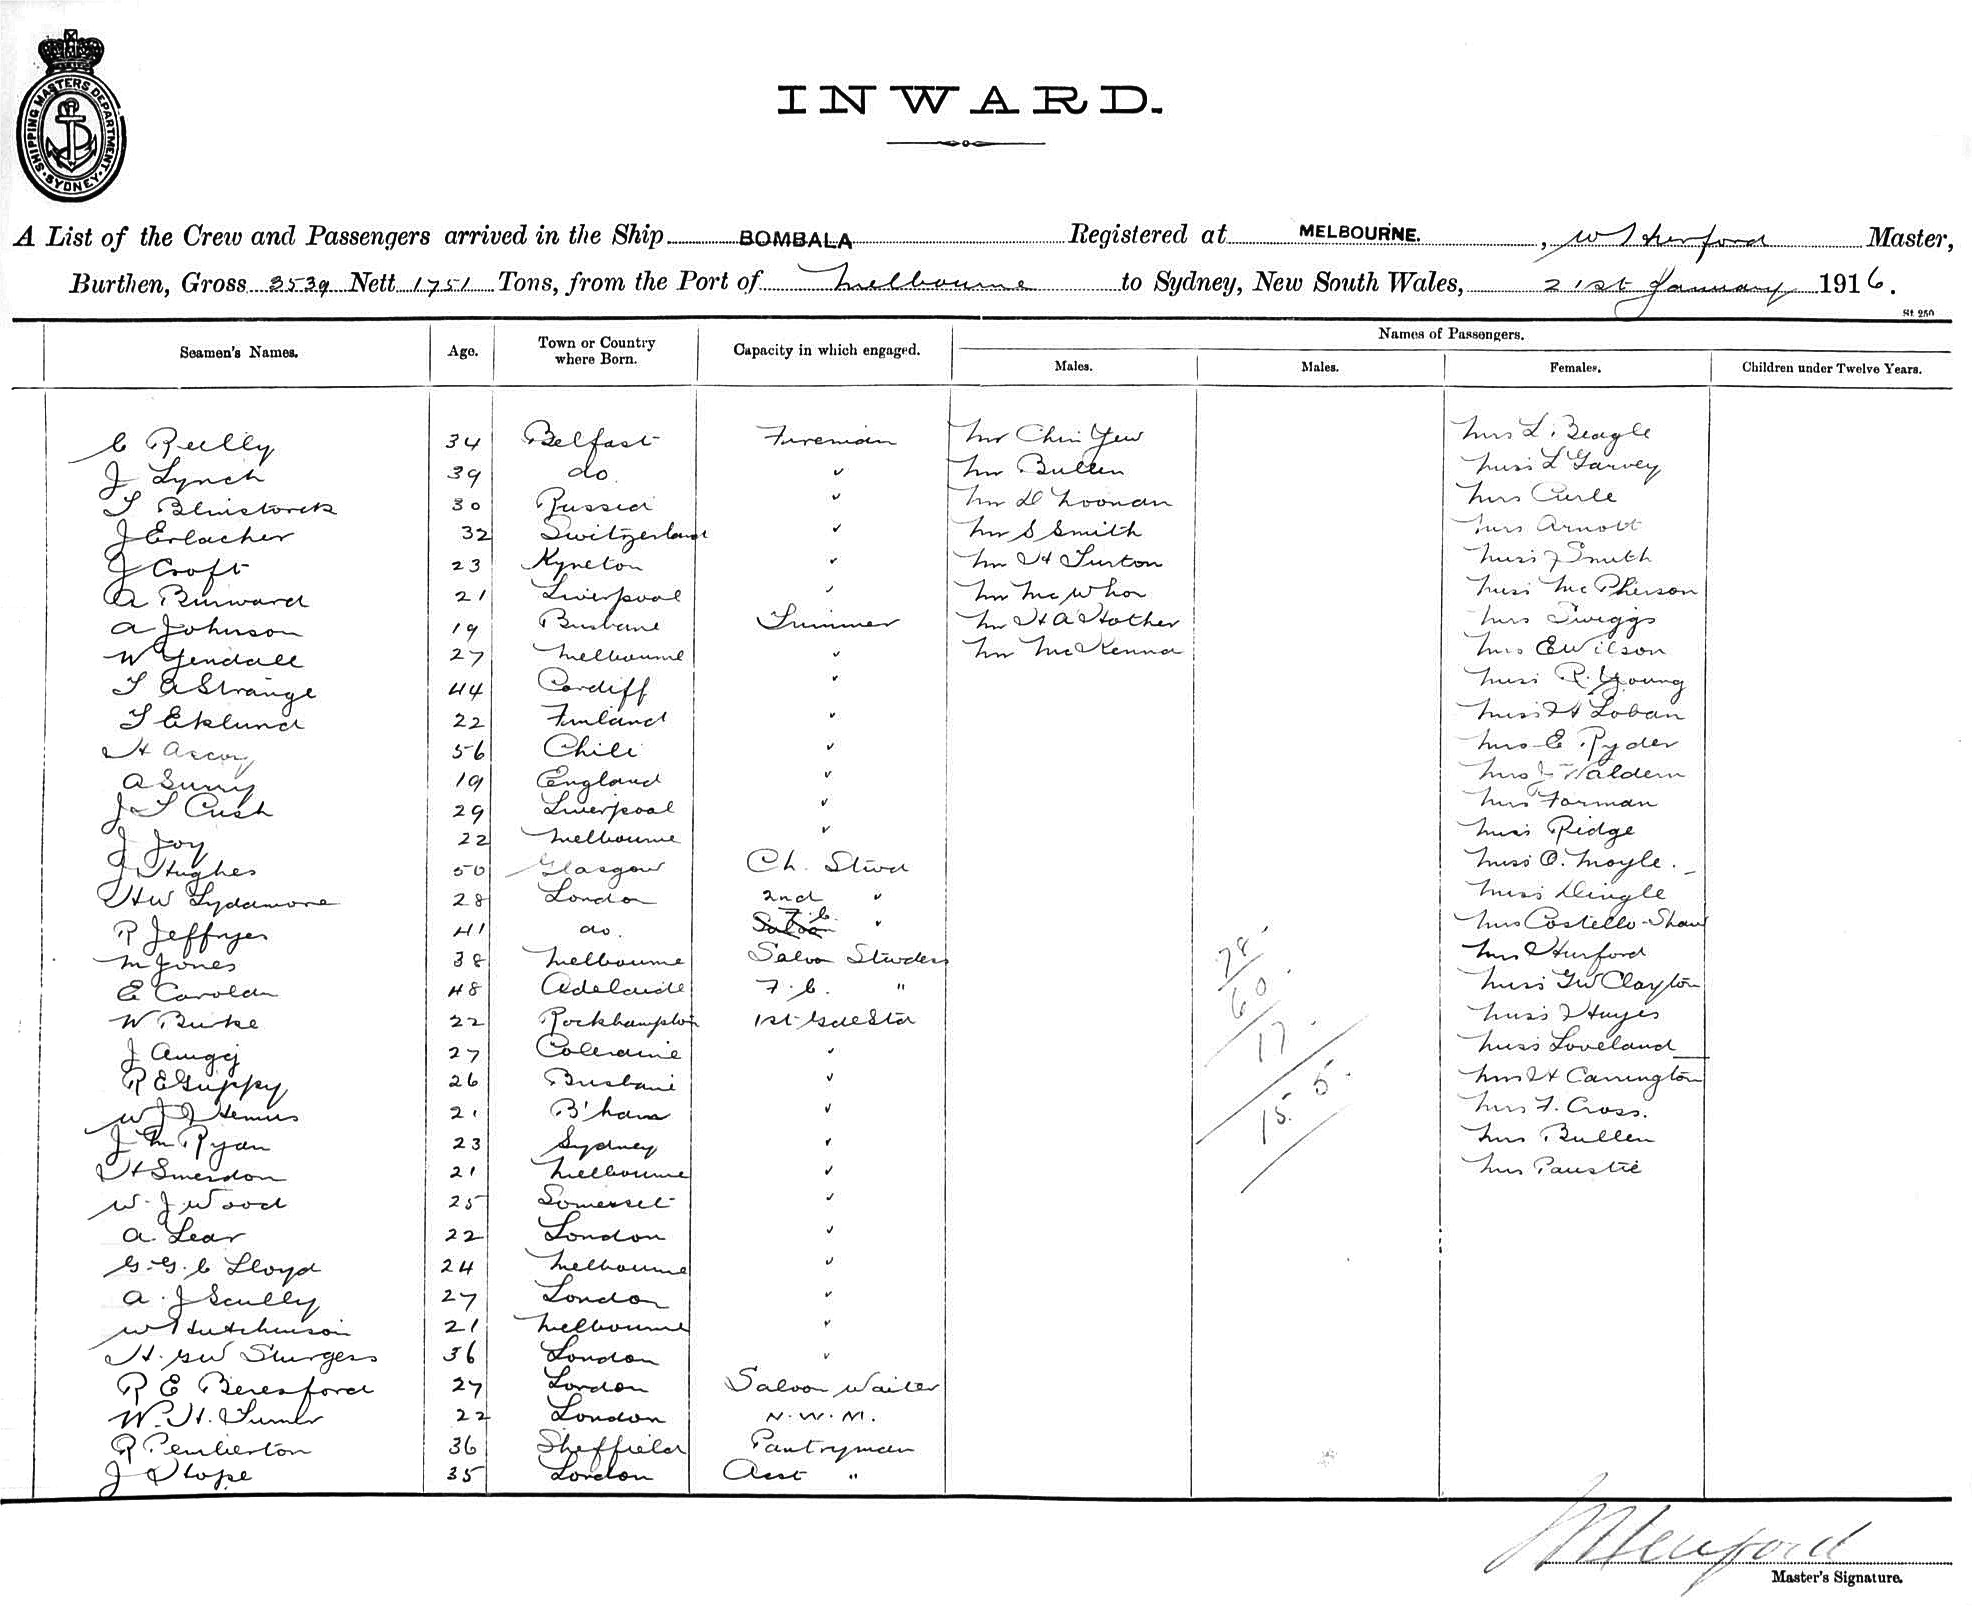 SHIPPING MASTERS DEPARTMENT SYDNEY
INWARD.
A List of the Crew and Passengers arrived in the Ship BOMBALA Registered at MELBOURNE. , Master,
Burthen, Gross 3539 Nett 1751 Tons, from the Port of Melbourne to Sydney, New South Wales, 21st January 1916.
St 250
Seamen's Names. Age. Town or Country where Born. Capacity in which engaged. Names of Passengers.
Males. Males. Females. Children under Twelve Years.
C Reilly 34 Belfast Fireman Mr Chin Yew Mrs L. Beagle
J Lynch 39 do " Mr Bullen Miss L Garvey
30 Russia " Mr D Noonan Mrs Curle
J Erlacher 32 Switzerland " Mr S Smith Mrs Arnott
J Croft 23 Kyneton " Mr H Turton Miss J Smith
A Burward 21 Liverpool " Mr McWhor Miss McPherson
A Johnson 19 Brisbane Trimmer Mr H A Hother Mrs Twiggs
W Yendall 27 Melbourne " Mr McKenna Mrs E Wilson
T A Strange 44 Cardiff " Miss R. Young
T Eklund 22 Finland " Miss H Loban
H Ascoy 56 Chili " Mrs E Ryder
A Surry 19 England " Mrs J Waldern
J T Cush 29 Liverpool " Mrs Forman
J Joy 22 Melbourne " Miss Ridge
J Hughes 50 Glasgow Ch. Stwd Miss O. Moyle.
H W Sydamore 28 London 2nd " Miss Dingle
R Jeffryes 41 do. F.C. " Mrs Costello-Shaw
M Jones 38 Melbourne Saloon Stwdess Mrs Hurford
E Carolan 48 Adelaide F.C. " Miss G W Clayton
W Burke 22 Rockhampton 1st Miss J Hayes
J 27 Coleraine " Miss Loveland
R E Guppy 26 Brisbane " Mrs H Carrington
W J J Hemus 21 B'ham " Mrs F. Cross.
J M Ryan 23 Sydney " Mrs Bullen
H Smerdon 21 Melbourne " Mrs Paustie
W. J Wood 25 Somerset "
A. Lear 22 London "
G. G. C Lloyd 24 Melbourne "
A. J Scully 27 London "
W Hutchinson 21 Melbourne "
H. G W Sturgess 36 London "
R E Beresford 27 London Saloon Waiter
W. H. Turner 22 London N.W.M.
R Pemberton 36 Sheffield Pantryman
J Hope 35 London Asst "
78.
60.
17.
5.
15
Master's Signature.